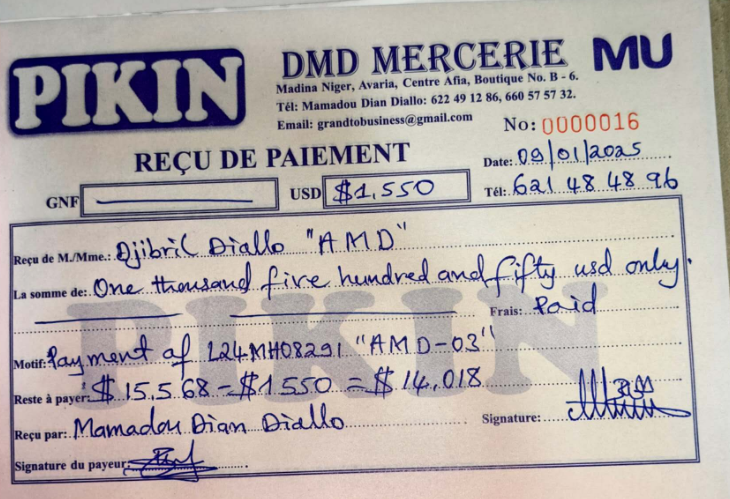 PIKIN
DMD MERCERIE MU
Madina Niger, Avaria, Centre Afia, Boutique No. B - 6.
Tél: Mamadou Dian Diallo: 622 49 12 86, 660 57 57 32.
Email: grandtobusiness@gmail.com
No: 0000016
REÇU DE PAIEMENT
Date: 09/01/2025
GNF USD $1,550 Tél: 621 48 48 96
Reçu de M./Mme.: Djibril Diallo "AMD"
La somme de: One thousand five hundred and fifty usd only.
Frais: Paid
PIKIN
Motif: Payment of L24MH08291 "AMD-03"
Reste à payer: $ 15,568 - $1550 = $14,018
Reçu par: Mamadou Dian Diallo Signature:
Signature du payeur: